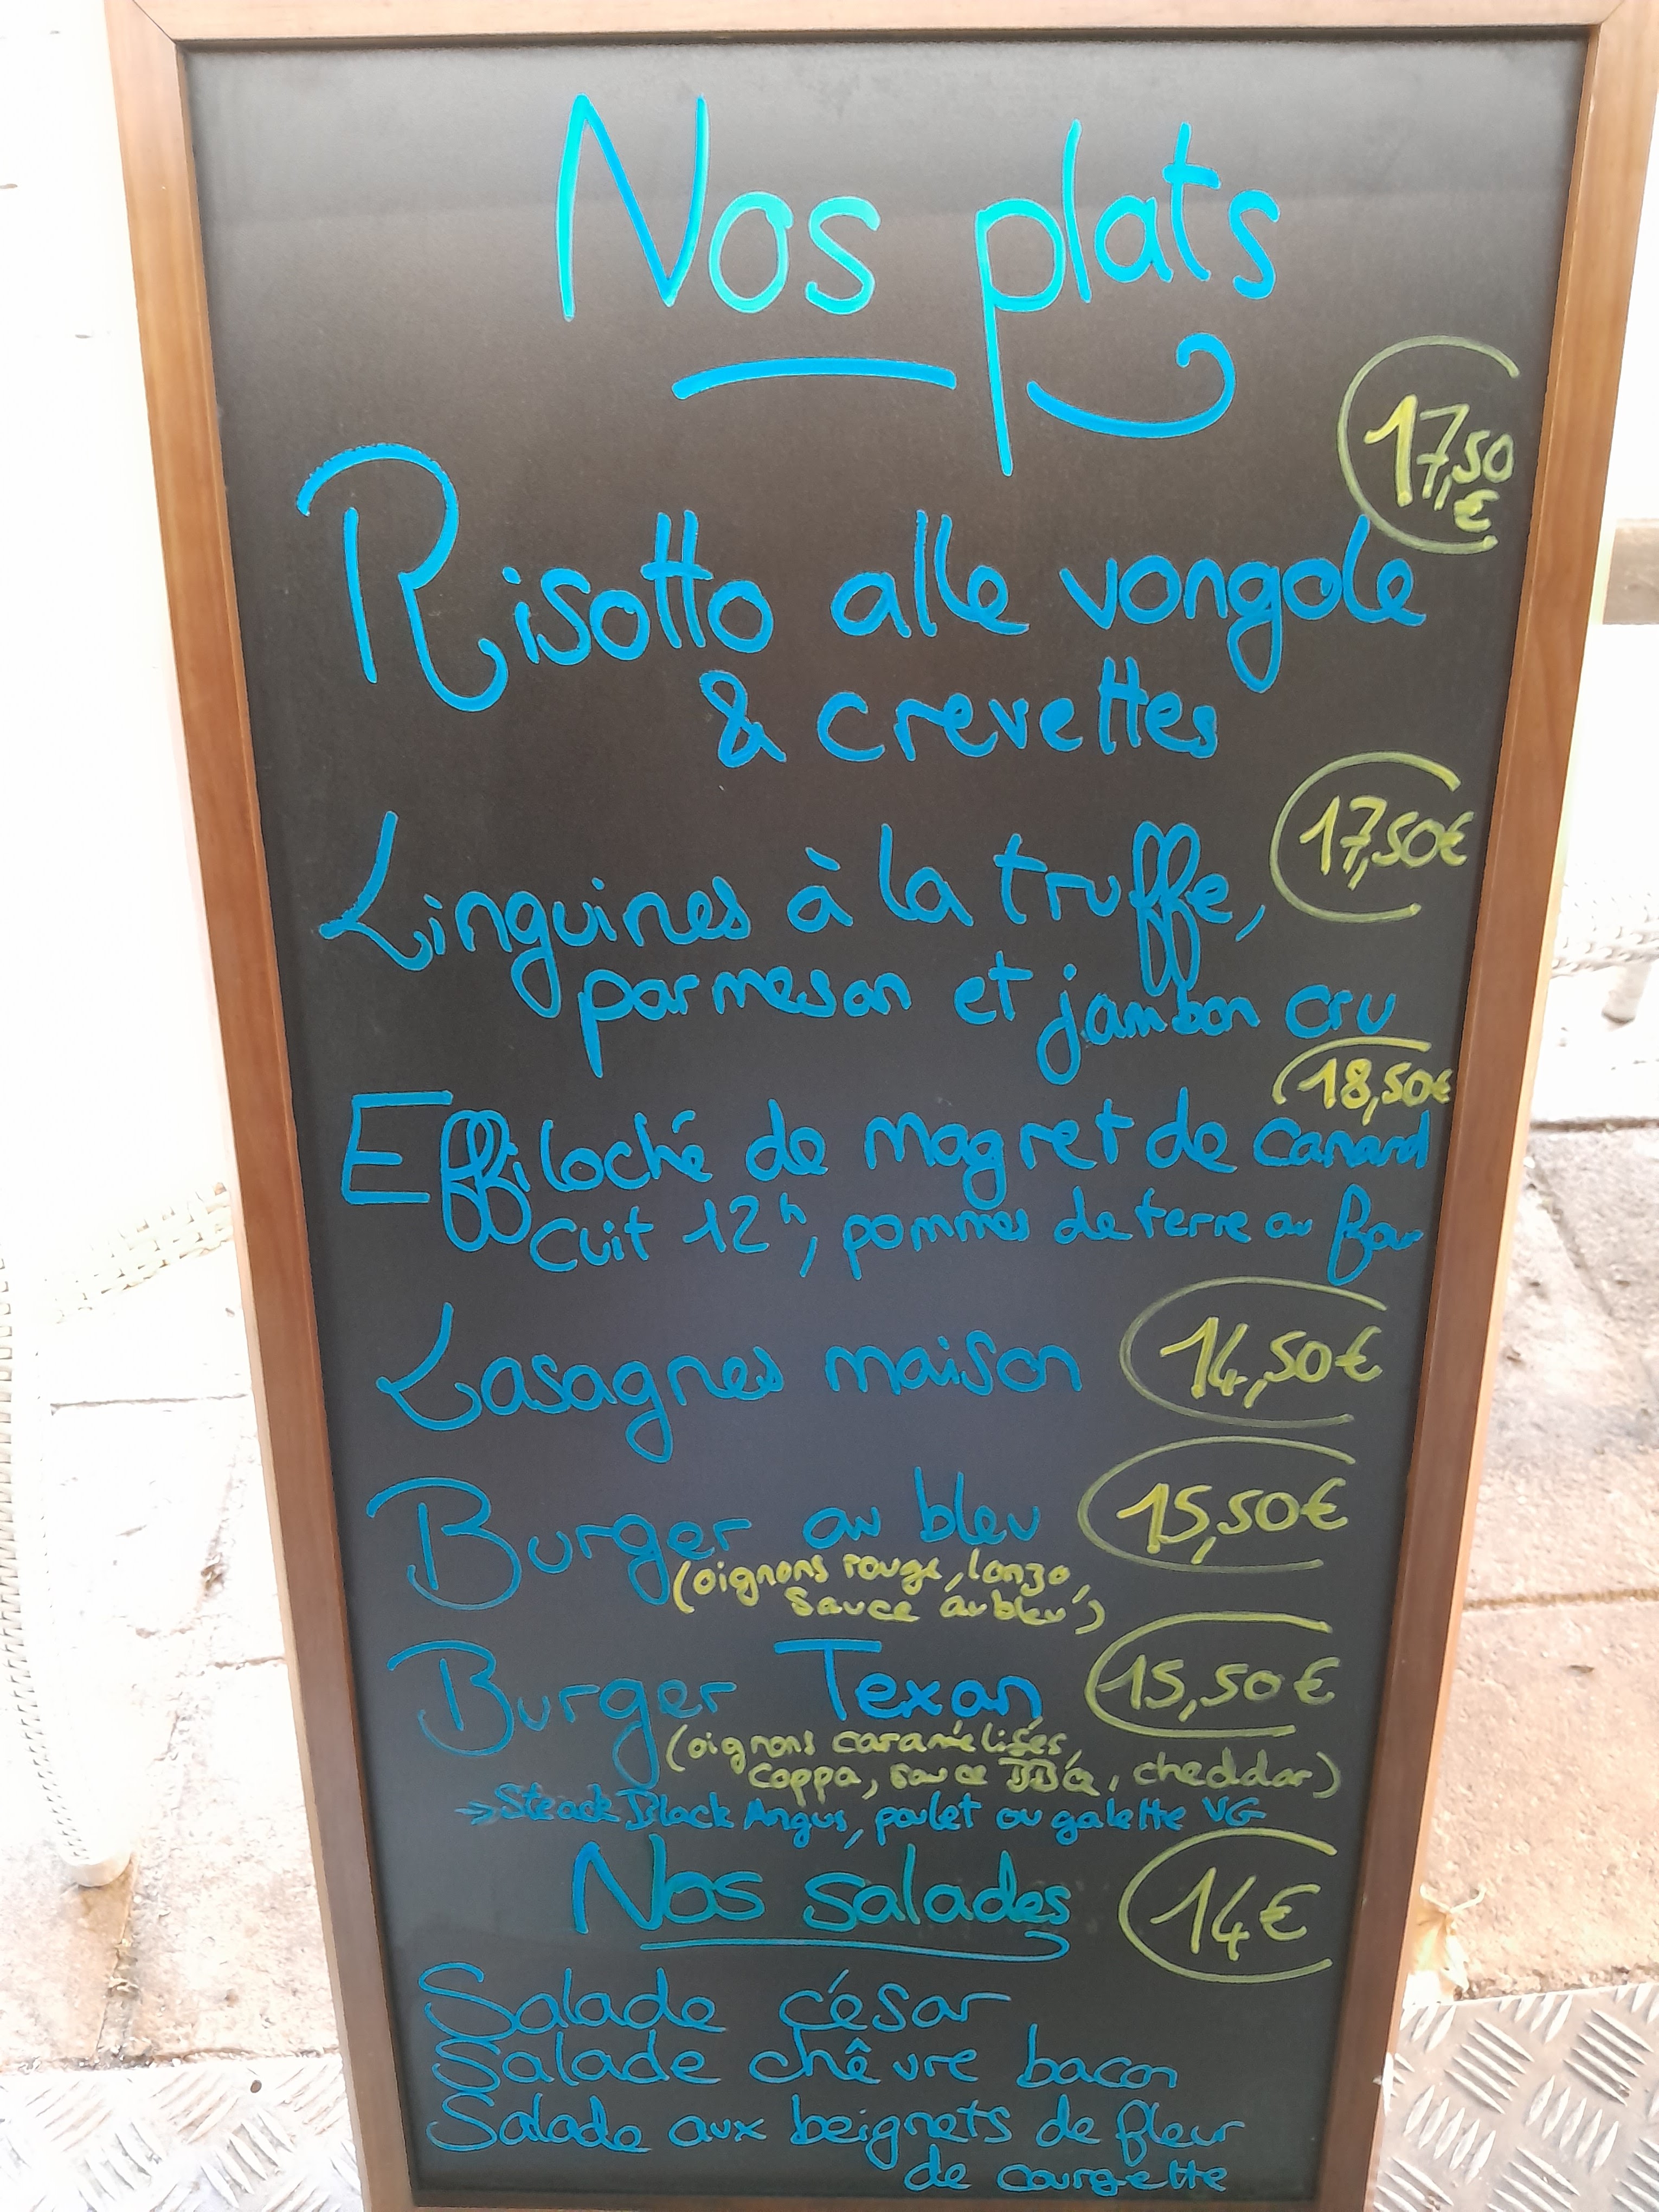 Nos plats
17,50
€
Risotto alle vongole
& crevettes
17,50€
Linguines à la truffe,
parmesan et jambon cru
18,50€
Effiloché de magret de canard
cuit 12h, pommes de terre au four
Lasagnes maison 14,50€
Burger au bleu 15,50€
(oignons rouge, lonzo,
sauce au bleu)
Burger Texan 15,50€
(oignons caramélisés,
coppa, sauce BBQ, cheddar)
→ Steack Black Angus, poulet ou galette VG
Nos salades 14€
Salade césar
Salade chêvre bacon
Salade aux beignets de fleur
de courgette